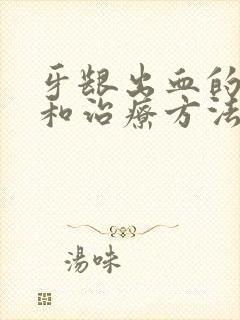 牙龈出血的
和治療方法
湯味